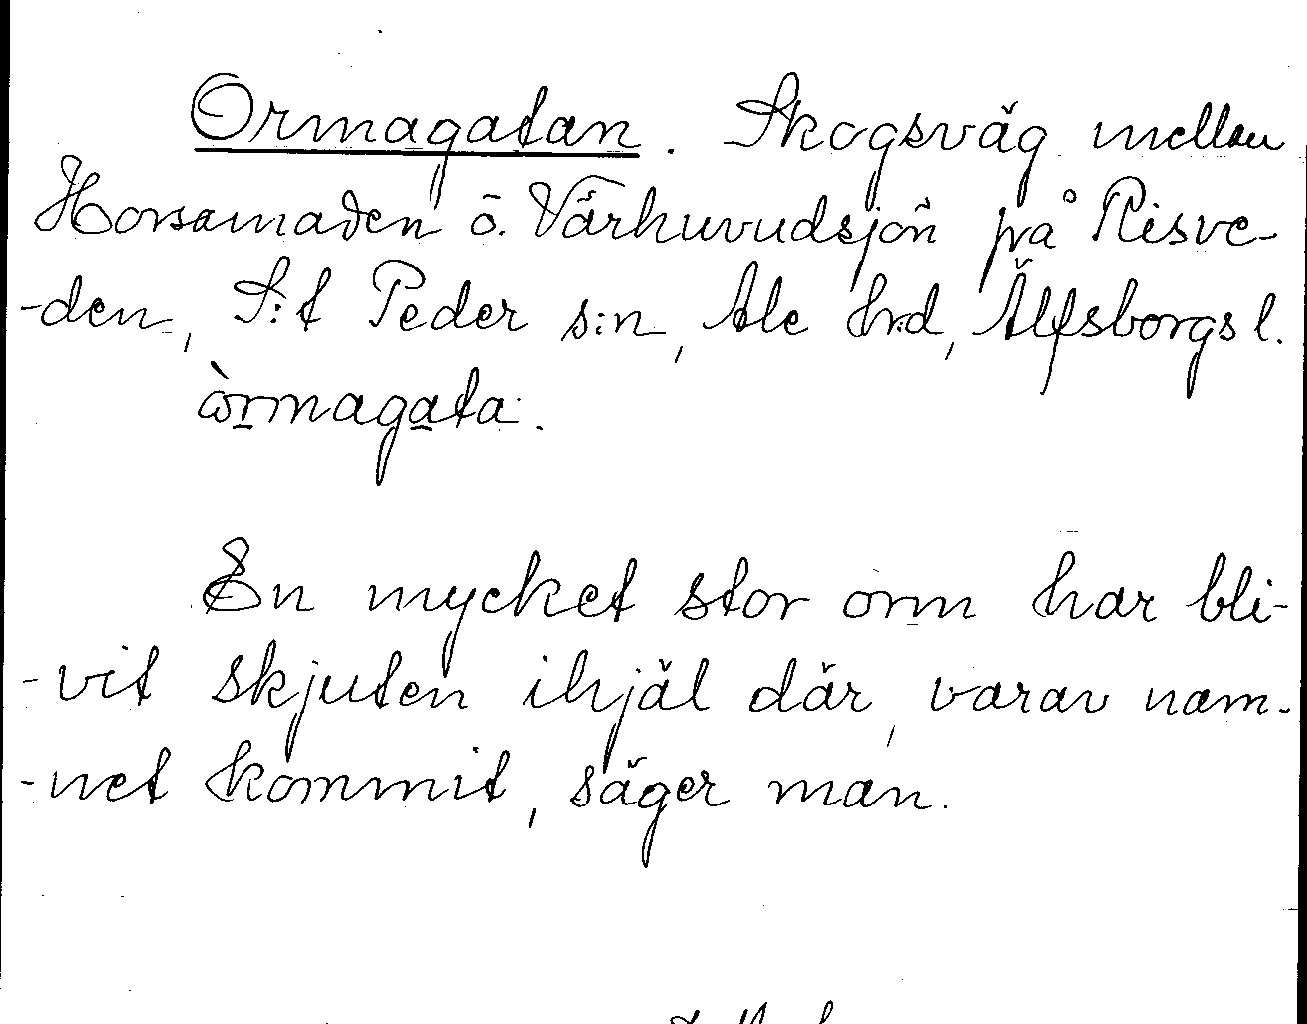 Ormagatan. Skogsväg mellan
Horsamaden o. Vårhuvudsjön på Risve-
-den, S:t Peder s:n, Ale hrd, Älfsborgs l.
òrmagata.
En mycket stor orm har bli-
-vit skjuten ihjäl där, varav nam-
-net kommit, säger man.